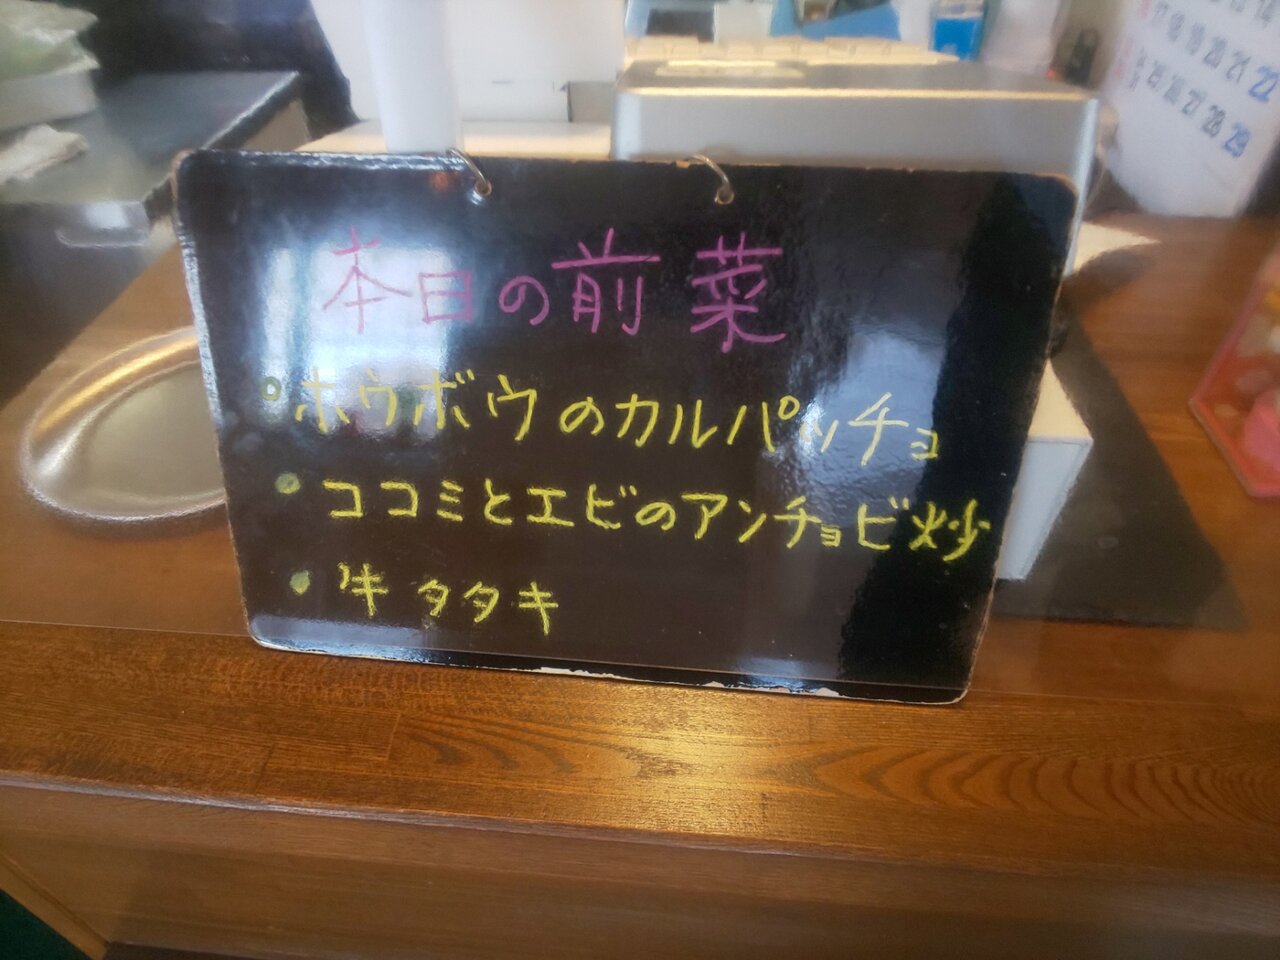 本日の前菜
ホウボウのカルパッチョ
ココミとエビのアンチョビ炒
牛タタキ
17 18 19 20 21 22
25 26 27 28 29